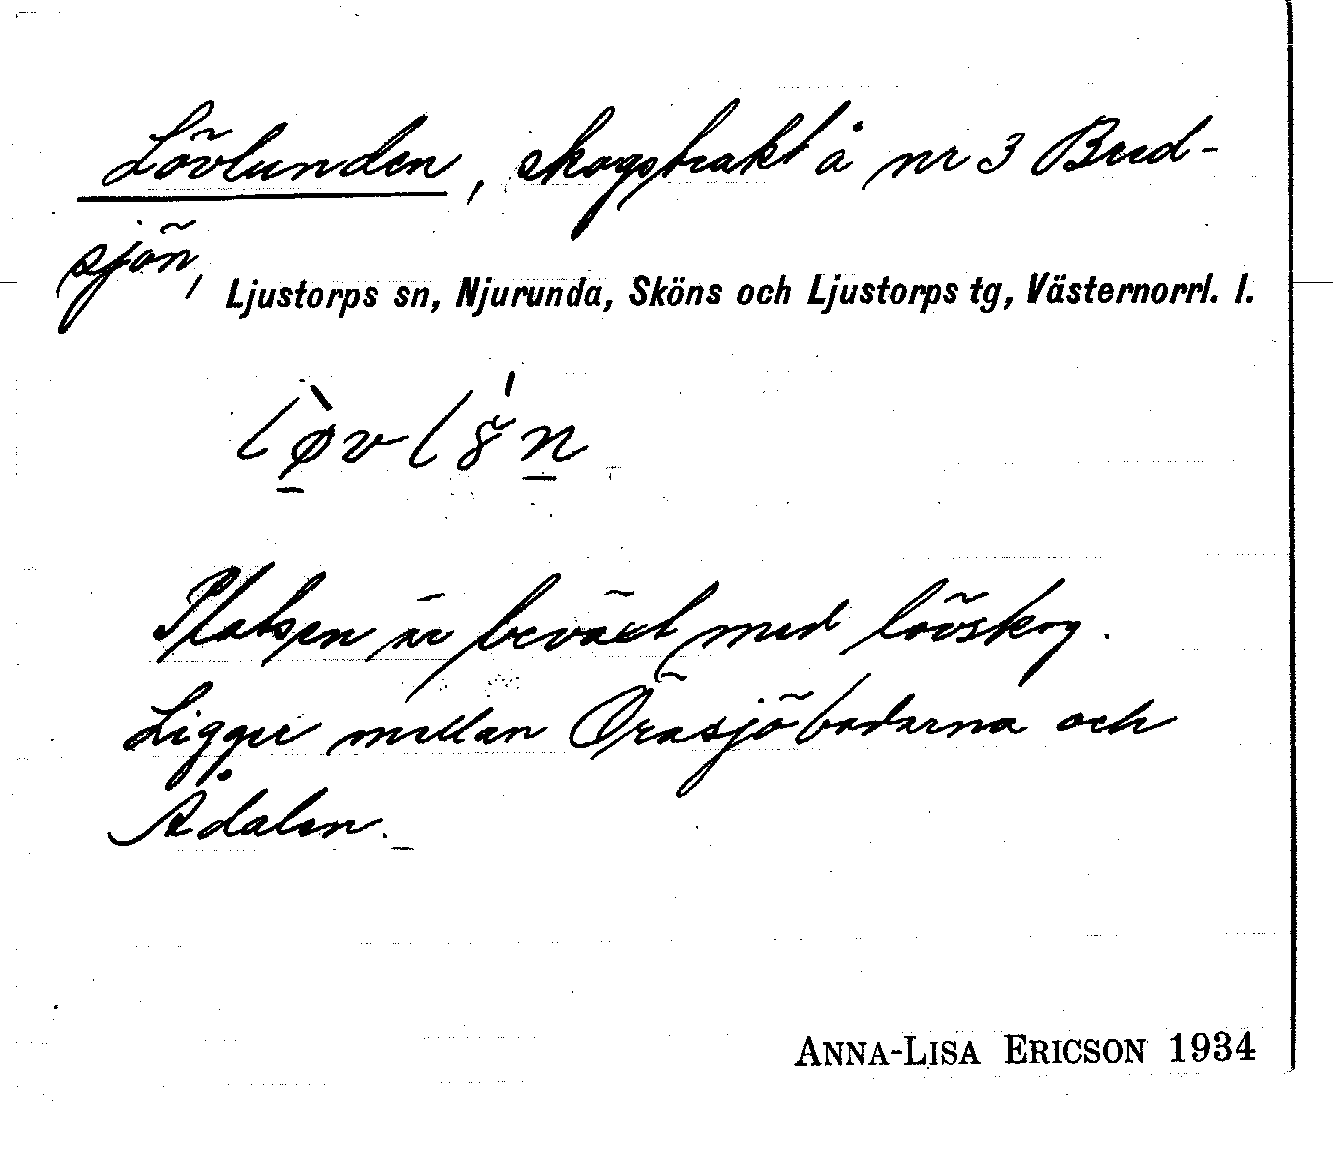 Lövlunden, skogstrakt å nr 3 Bred-
sjön,
Ljustorps sn, Njurunda, Sköns och Ljustorps tg, Västernorrl. l.
Platsen är beväxt med lövskog.
Ligger mellan Öråsjöbodarna och
Ådalen.
ANNA-LISA ERICSON 1934